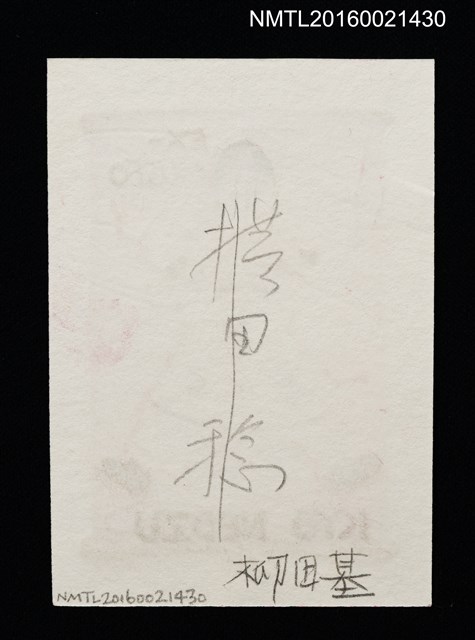 NMTL20160021430
横田稔
柳田基
NMTL20160021430